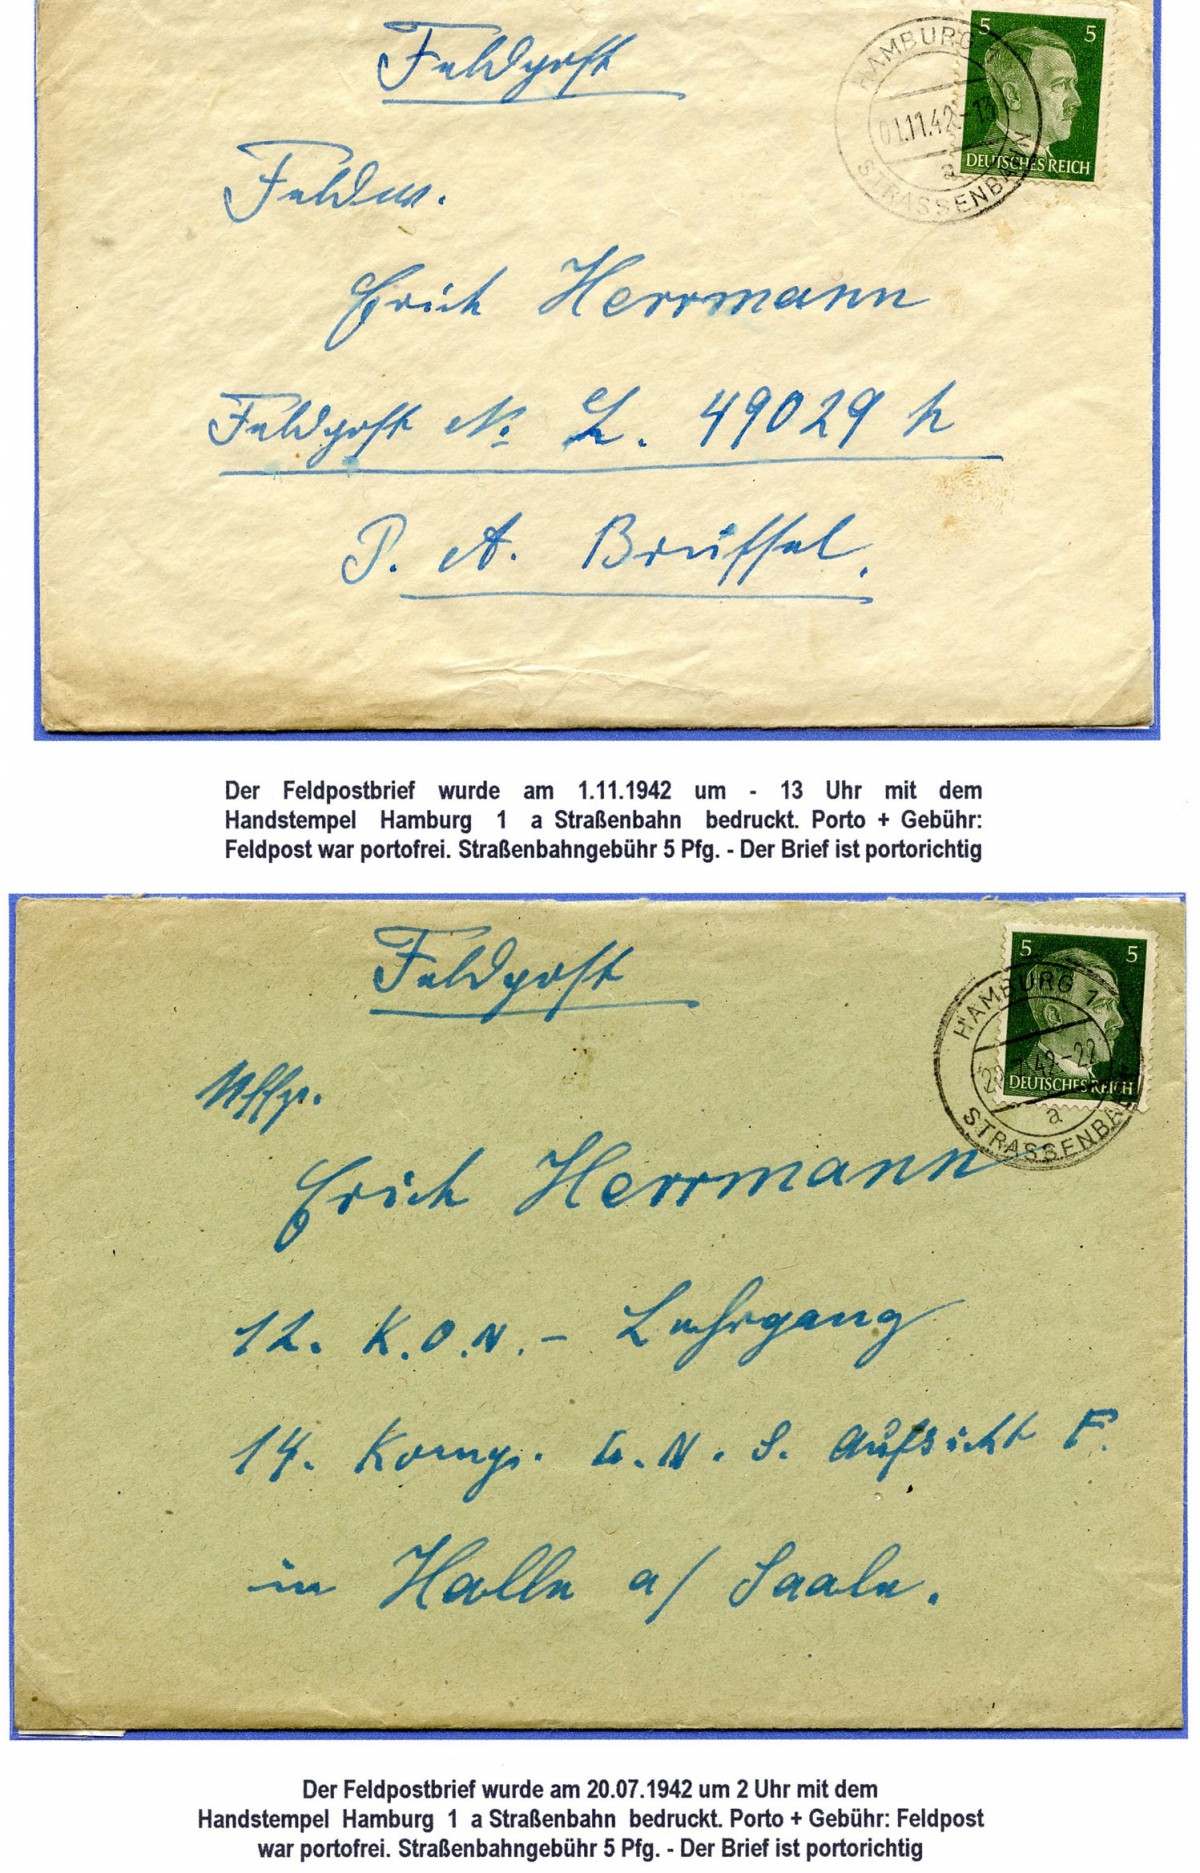 Feldpost
5 5
DEUTSCHES REICH
HAMBURG 1
01.11.42-13
a
STRASSENBAHN
Feldw.
Erich Herrmann
Feldpost No L. 49029 h
P. A. Brüssel.
Der Feldpostbrief wurde am 1.11.1942 um - 13 Uhr mit dem
Handstempel Hamburg 1 a Straßenbahn bedruckt. Porto + Gebühr:
Feldpost war portofrei. Straßenbahngebühr 5 Pfg. - Der Brief ist portorichtig
Feldpost
5 5
DEUTSCHES REICH
HAMBURG 1
42-22
a
STRASSENBAHN
Uffz.
Erich Herrmann
12. K.O.N. - Lehrgang
14. Komp. L.N.S. Aufsicht F.
in Halle a/ Saale.
Der Feldpostbrief wurde am 20.07.1942 um 2 Uhr mit dem
Handstempel Hamburg 1 a Straßenbahn bedruckt. Porto + Gebühr: Feldpost
war portofrei. Straßenbahngebühr 5 Pfg. - Der Brief ist portorichtig